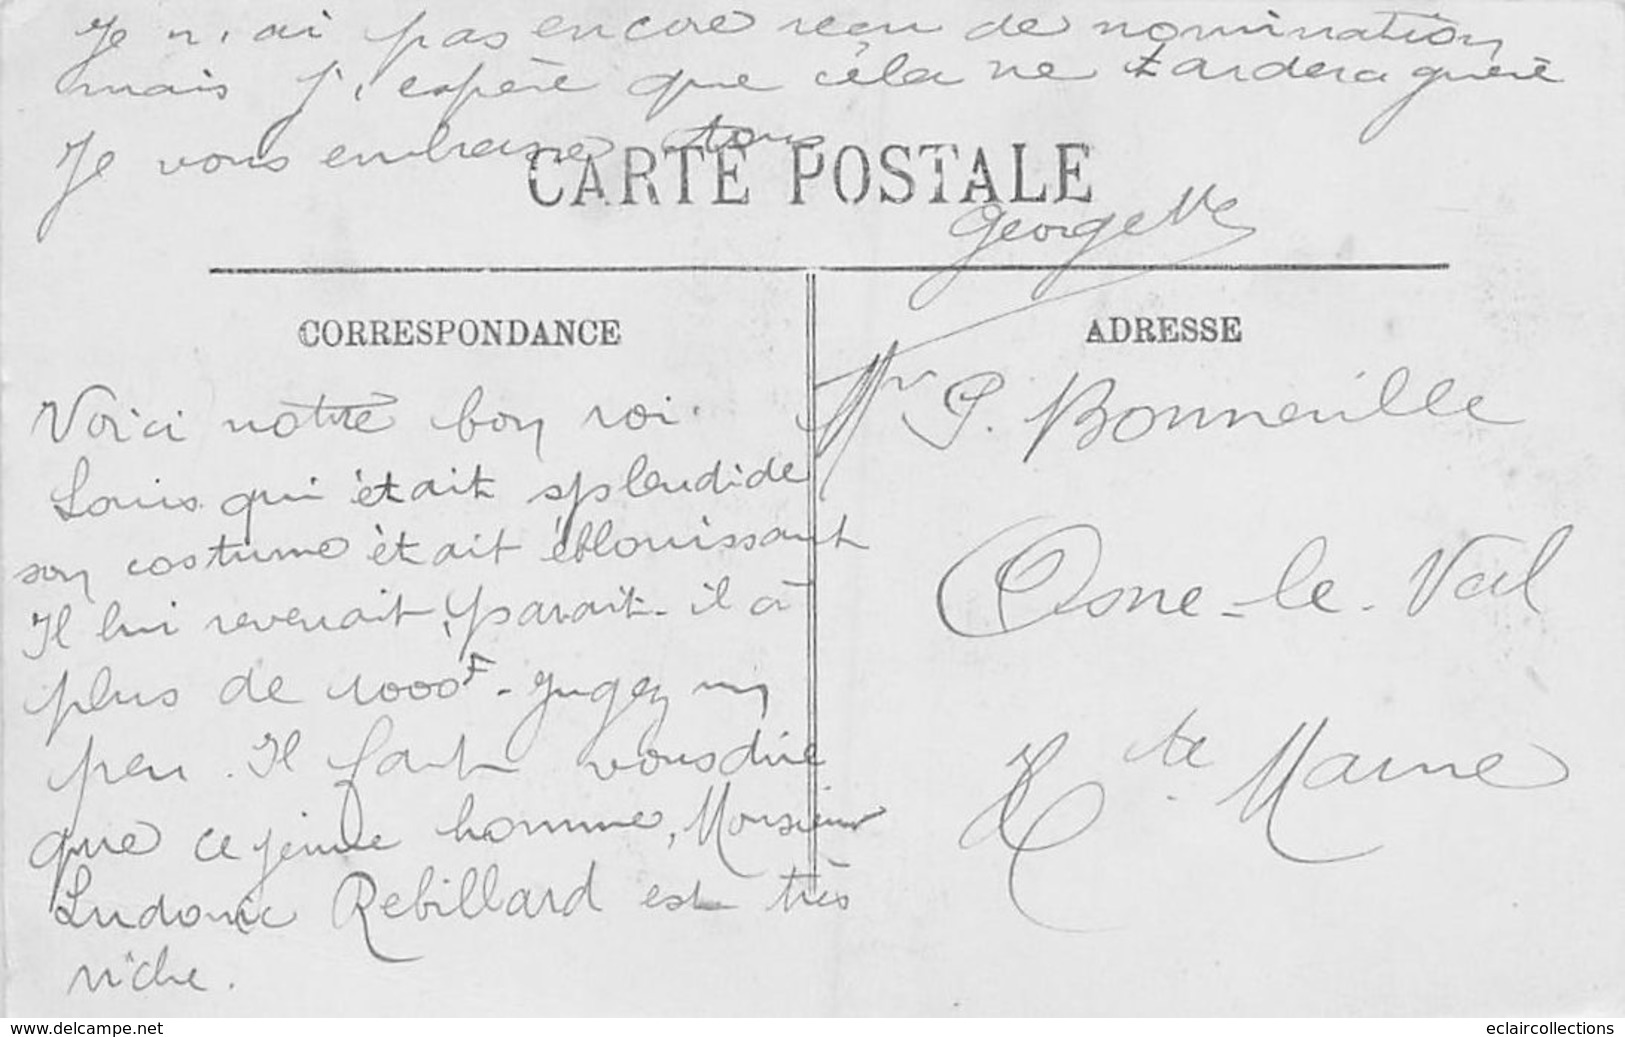 Je n'ai pas encore reçu de nomination
mais j'espère que cela ne tardera guère
Je vous embrasse tous
CARTE POSTALE
Georgette
CORRESPONDANCE
ADRESSE
Voici notre bon roi
Louis qui était splendide
son costume était éblouissant
Il lui revenait, parait-il à
plus de 1000F - Jugez un
peu. Il faut vous dire
que ce jeune homme, Monsieur
Ludovic Rebillard est très
riche.
Mr P. Bonneville
Osne-le-Val
Hte Marne
www.delcampe.net
eclaircollections